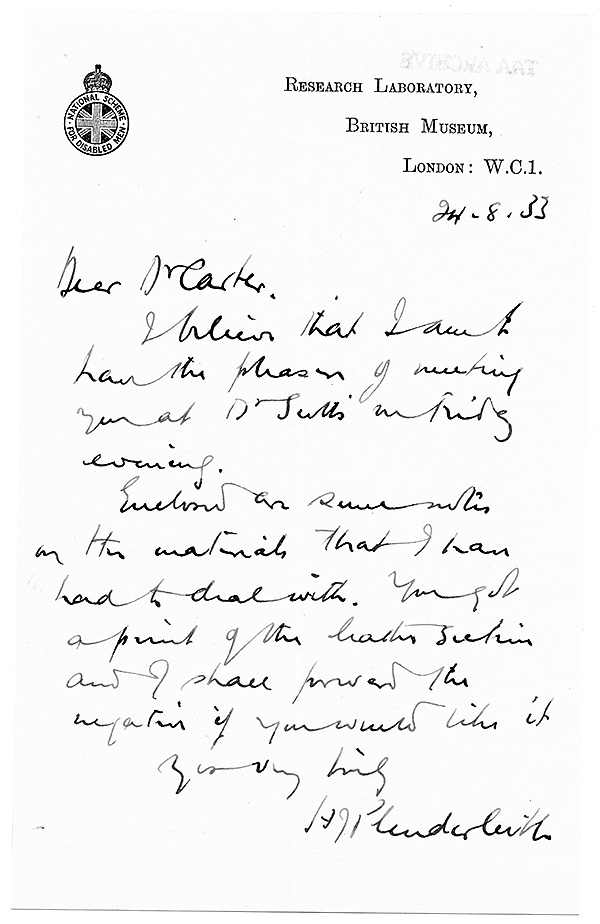 TAA ARCHIVE
NATIONAL SCHEME
FOR DISABLED MEN
RESEARCH LABORATORY,
BRITISH MUSEUM,
LONDON: W.C.1.
24.8.33
Dear Dr Carter.
I believe that I am to
have the pleasure of meeting
you at Dr Scott's on Friday
evening.
Enclosed are some notes
on the materials that I have
had to deal with. You got
a print of the leather section
and I shall forward the
negative if you would like it
Yours very truly
H J Plenderleith